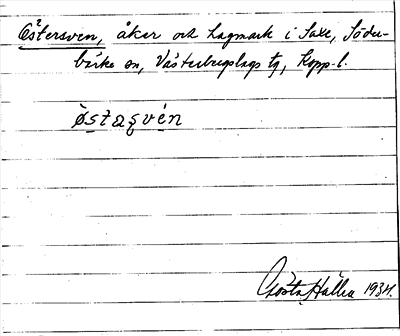 Östersven, åker och hagmark i Saxe, Söder-
bärke sn, Västerbergslags tg, Kopp. l.
östasvén
Gösta Hallén 1934.